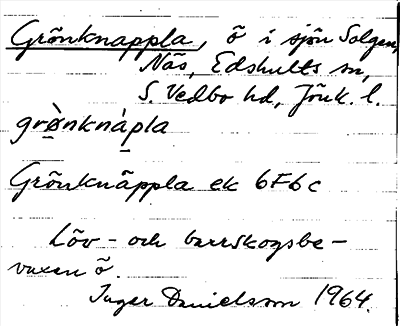 Grönknappla, ö i sjön Solgen,
Näs, Edshults sn,
S. Vedbo hd, Jönk. l.
grø̀nknàpla
Grönknäppla ek 6F6c
Löv- och barrskogsbe-
vuxen ö.
Inger Danielsson 1964.